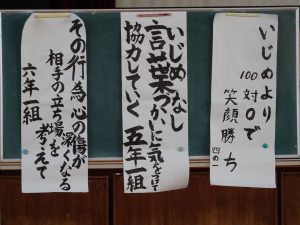 いじめより
100対0で
笑顔勝ち
四の一
いじめなし
言葉づかいに気をつけて
協力していく 五年一組
その行為心の傷が
深くなる
相手の立ち場を
考えて
六年一組